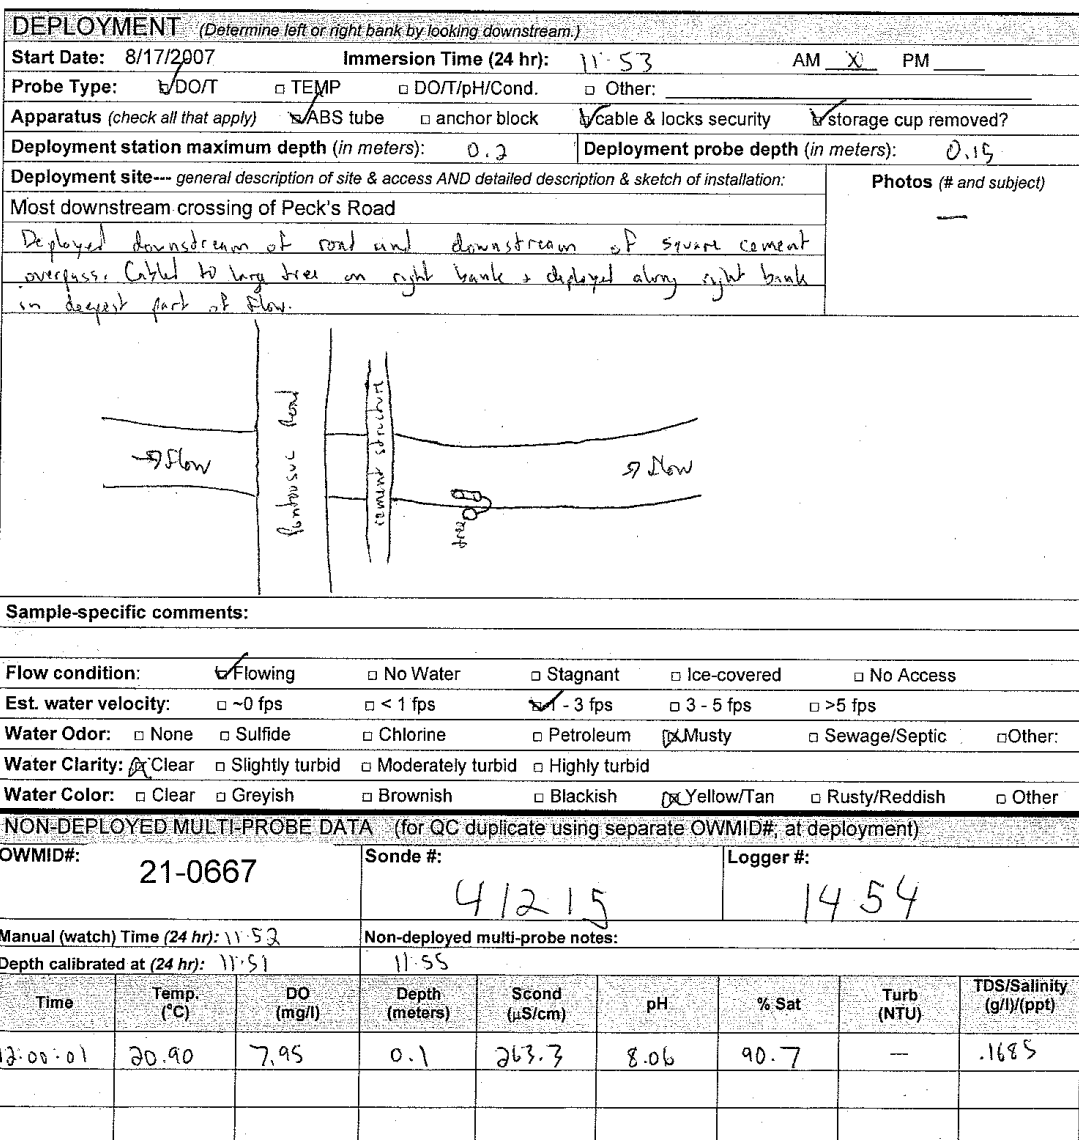 DEPLOYMENT (Determine left or right bank by looking downstream.)
Start Date: 8/17/2007 Immersion Time (24 hr): 11:53 AM X PM
Probe Type: ☑ DO/T □ TEMP □ DO/T/pH/Cond. □ Other:
Apparatus (check all that apply) ☑ ABS tube □ anchor block ☑ cable & locks security ☑ storage cup removed?
Deployment station maximum depth (in meters): 0.2 Deployment probe depth (in meters): 0.15
Deployment site--- general description of site & access AND detailed description & sketch of installation: Photos (# and subject)
Most downstream crossing of Peck's Road —
Deployed downstream of road and downstream of square cement
overpass. Cabled to large tree on right bank + deployed along right bank
in deepest part of flow.
Pontoosuc Road
cement structure
→ Flow
→ Flow
tree
Sample-specific comments:
Flow condition: ☑ Flowing □ No Water □ Stagnant □ Ice-covered □ No Access
Est. water velocity: □ ~0 fps □ < 1 fps ☑ 1 - 3 fps □ 3 - 5 fps □ >5 fps
Water Odor: □ None □ Sulfide □ Chlorine □ Petroleum ☒ Musty □ Sewage/Septic □ Other:
Water Clarity: ☒ Clear □ Slightly turbid □ Moderately turbid □ Highly turbid
Water Color: □ Clear □ Greyish □ Brownish □ Blackish ☒ Yellow/Tan □ Rusty/Reddish □ Other
NON-DEPLOYED MULTI-PROBE DATA (for QC duplicate using separate OWMID#, at deployment)
OWMID#: 21-0667 Sonde #: 41215 Logger #: 1454
Manual (watch) Time (24 hr): 11:52 Non-deployed multi-probe notes:
Depth calibrated at (24 hr): 11:51 11:55
Time Temp. (°C) DO (mg/l) Depth (meters) Scond (µS/cm) pH % Sat Turb (NTU) TDS/Salinity (g/l)/(ppt)
12:00:01 20.90 7.95 0.1 263.3 8.06 90.7 — .1685